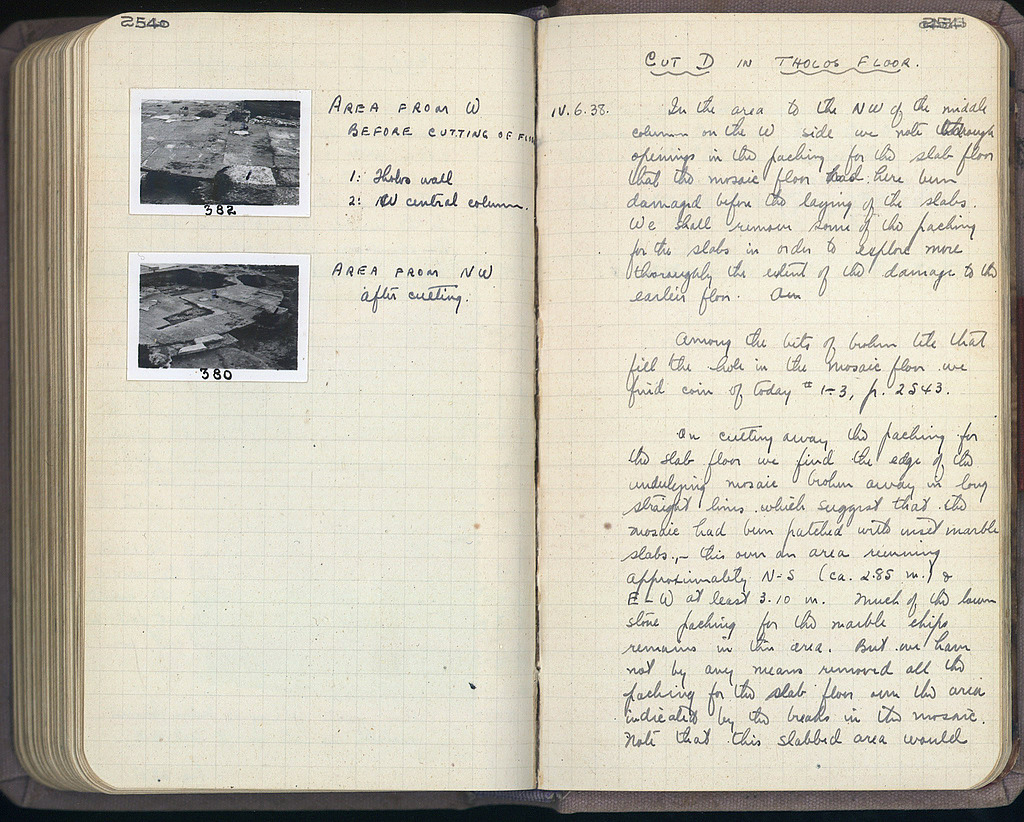 2540
AREA FROM W
BEFORE CUTTING OF
1: Tholos wall
2: W central column.
382
AREA FROM NW
after cutting.
380
CUT D IN THOLOS FLOOR.
IV.6.38. In the area to the NW of the middle
column on the W side we note through
openings in the packing for the slab floor
that the mosaic floor had here been
damaged before the laying of the slabs.
We shall remove some of the packing
for the slabs in order to explore more
thoroughly the extent of the damage to the
earlier floor.
Among the bits of broken tile that
fill the hole in the mosaic floor we
find coin of today # 1-3, p. 2543.
On cutting away the packing for
the slab floor we find the edge of the
underlying mosaic broken away in long
straight lines which suggest that the
mosaic had been patched with inset marble
slabs, – this over an area running
approximately N-S (ca. 2.85 m.) &
E-W at least 3.10 m. Much of the lower
stone packing for the marble chips
remains in this area. But we have
not by any means removed all the
packing for the slab floor over the area
indicated by the breaks in the mosaic.
Note that this slabbed area would